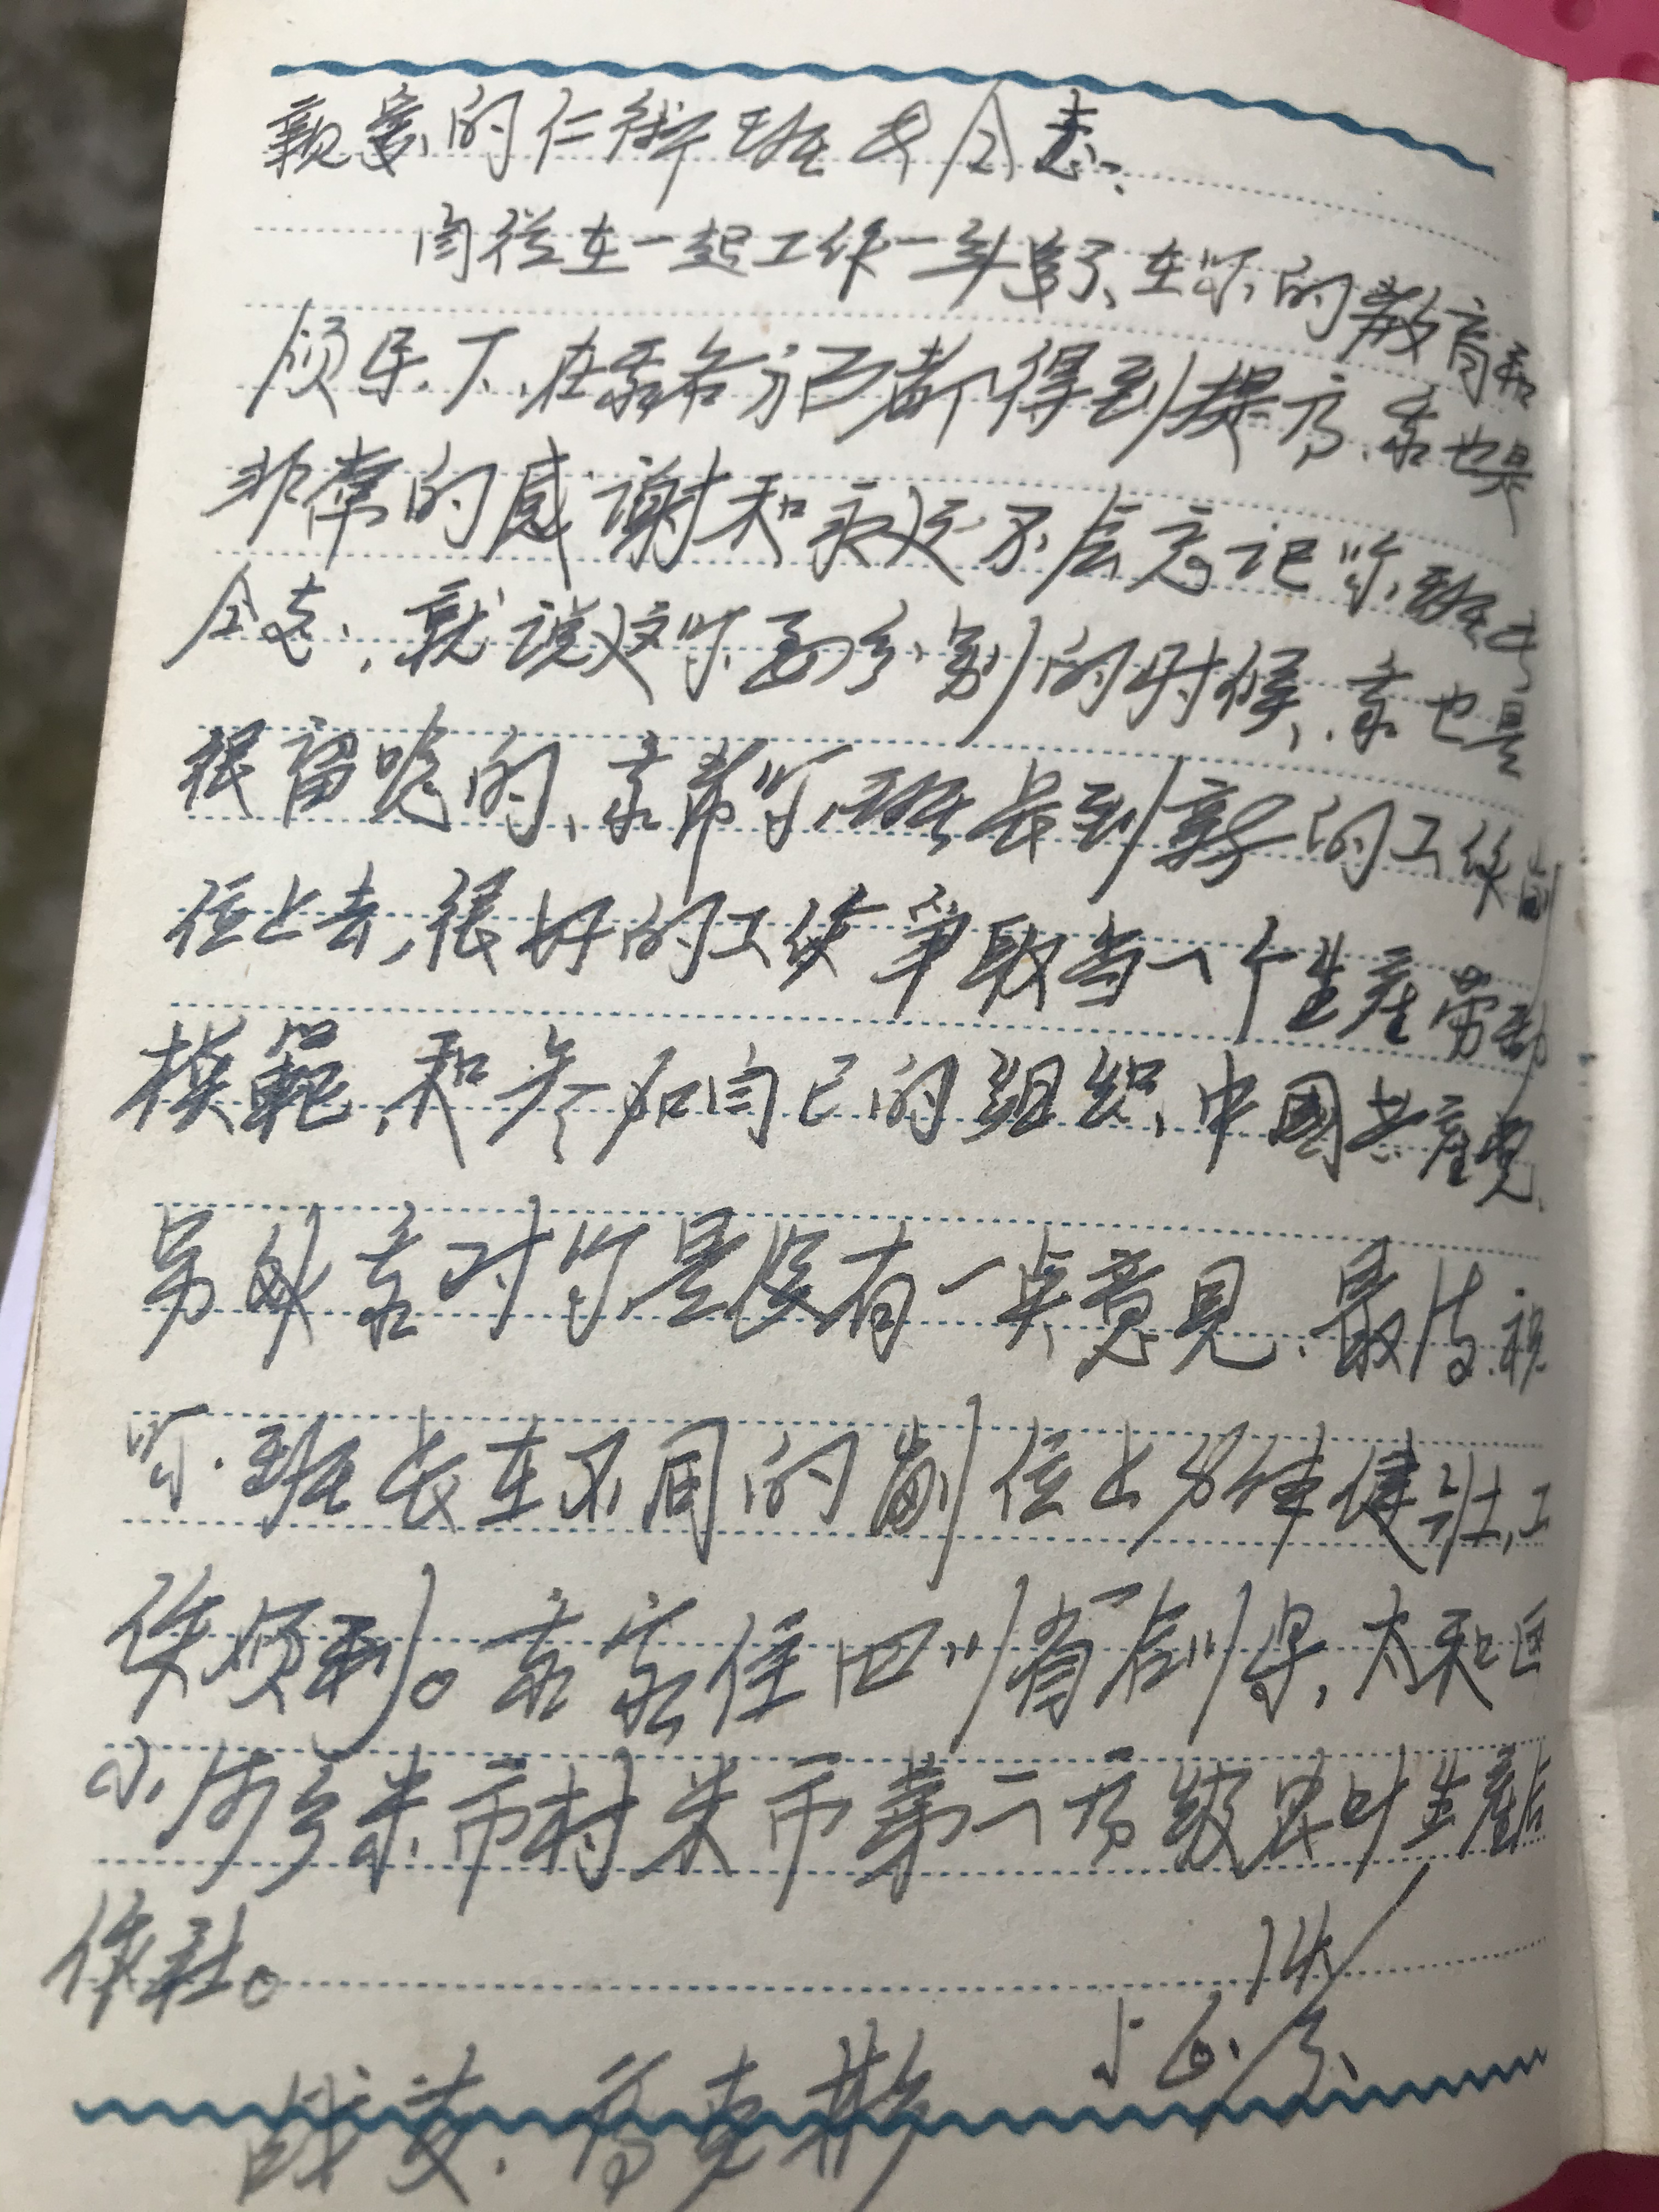 亲爱的仁衍班长同志、
自从在一起工作一年多了、在你的教育和
领导下、在我各方面都得到提高、我也是
非常的感谢和永远不会忘记你班长
同志、就说这你要分别的时候、我也是
很留恋的、我希你班长到新的工作崗
位上去,很好的工作争取当一个生產劳动
模範、和参加自己的组织、中國共産党、
另外我对你是没有一点意见、最后、祝
你班长在不同的崗位上身体健壮,工
作顺利。我家住四川省射洪,太和
小河乡米市村米市第二高级农叶生產合
作社。
战友、高克彬
56、